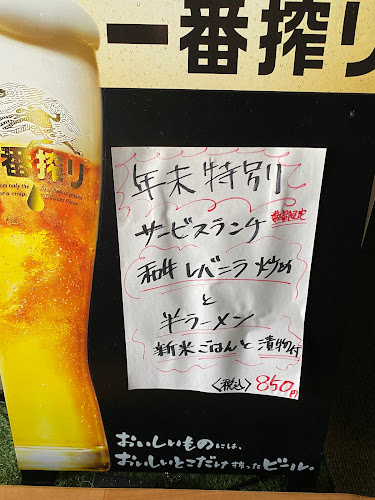 一番搾り
KIRIN
一番搾り
年末特別
サービスランチ 数量限定
和牛レバニラ炒め
と
半ラーメン
新米ごはんと漬物付
〈税込〉850円
おいしいものには、
おいしいとこだけ搾ったビール。